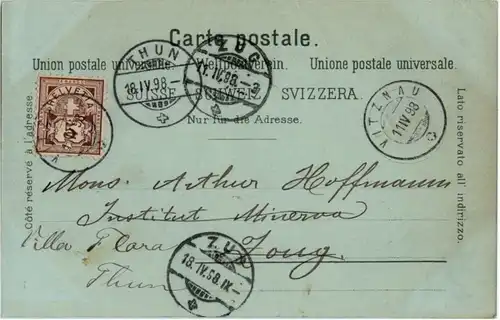 Carte postale.
Union postale universelle. Weltpostverein. Unione postale universale.
SUISSE. SCHWEIZ. SVIZZERA.
Nur für die Adresse.
Côté réservé à l'adresse.
Lato riservato all' indirizzo.
HELVETIA
THUN
18.IV.98.
ZUG
11.IV.98.
VITZNAU
11 IV 98
Mons. Arthur Hoffmann
Institut Minerva
Villa Flora Zoug.
Thun
ZUG
18.IV.98.IX